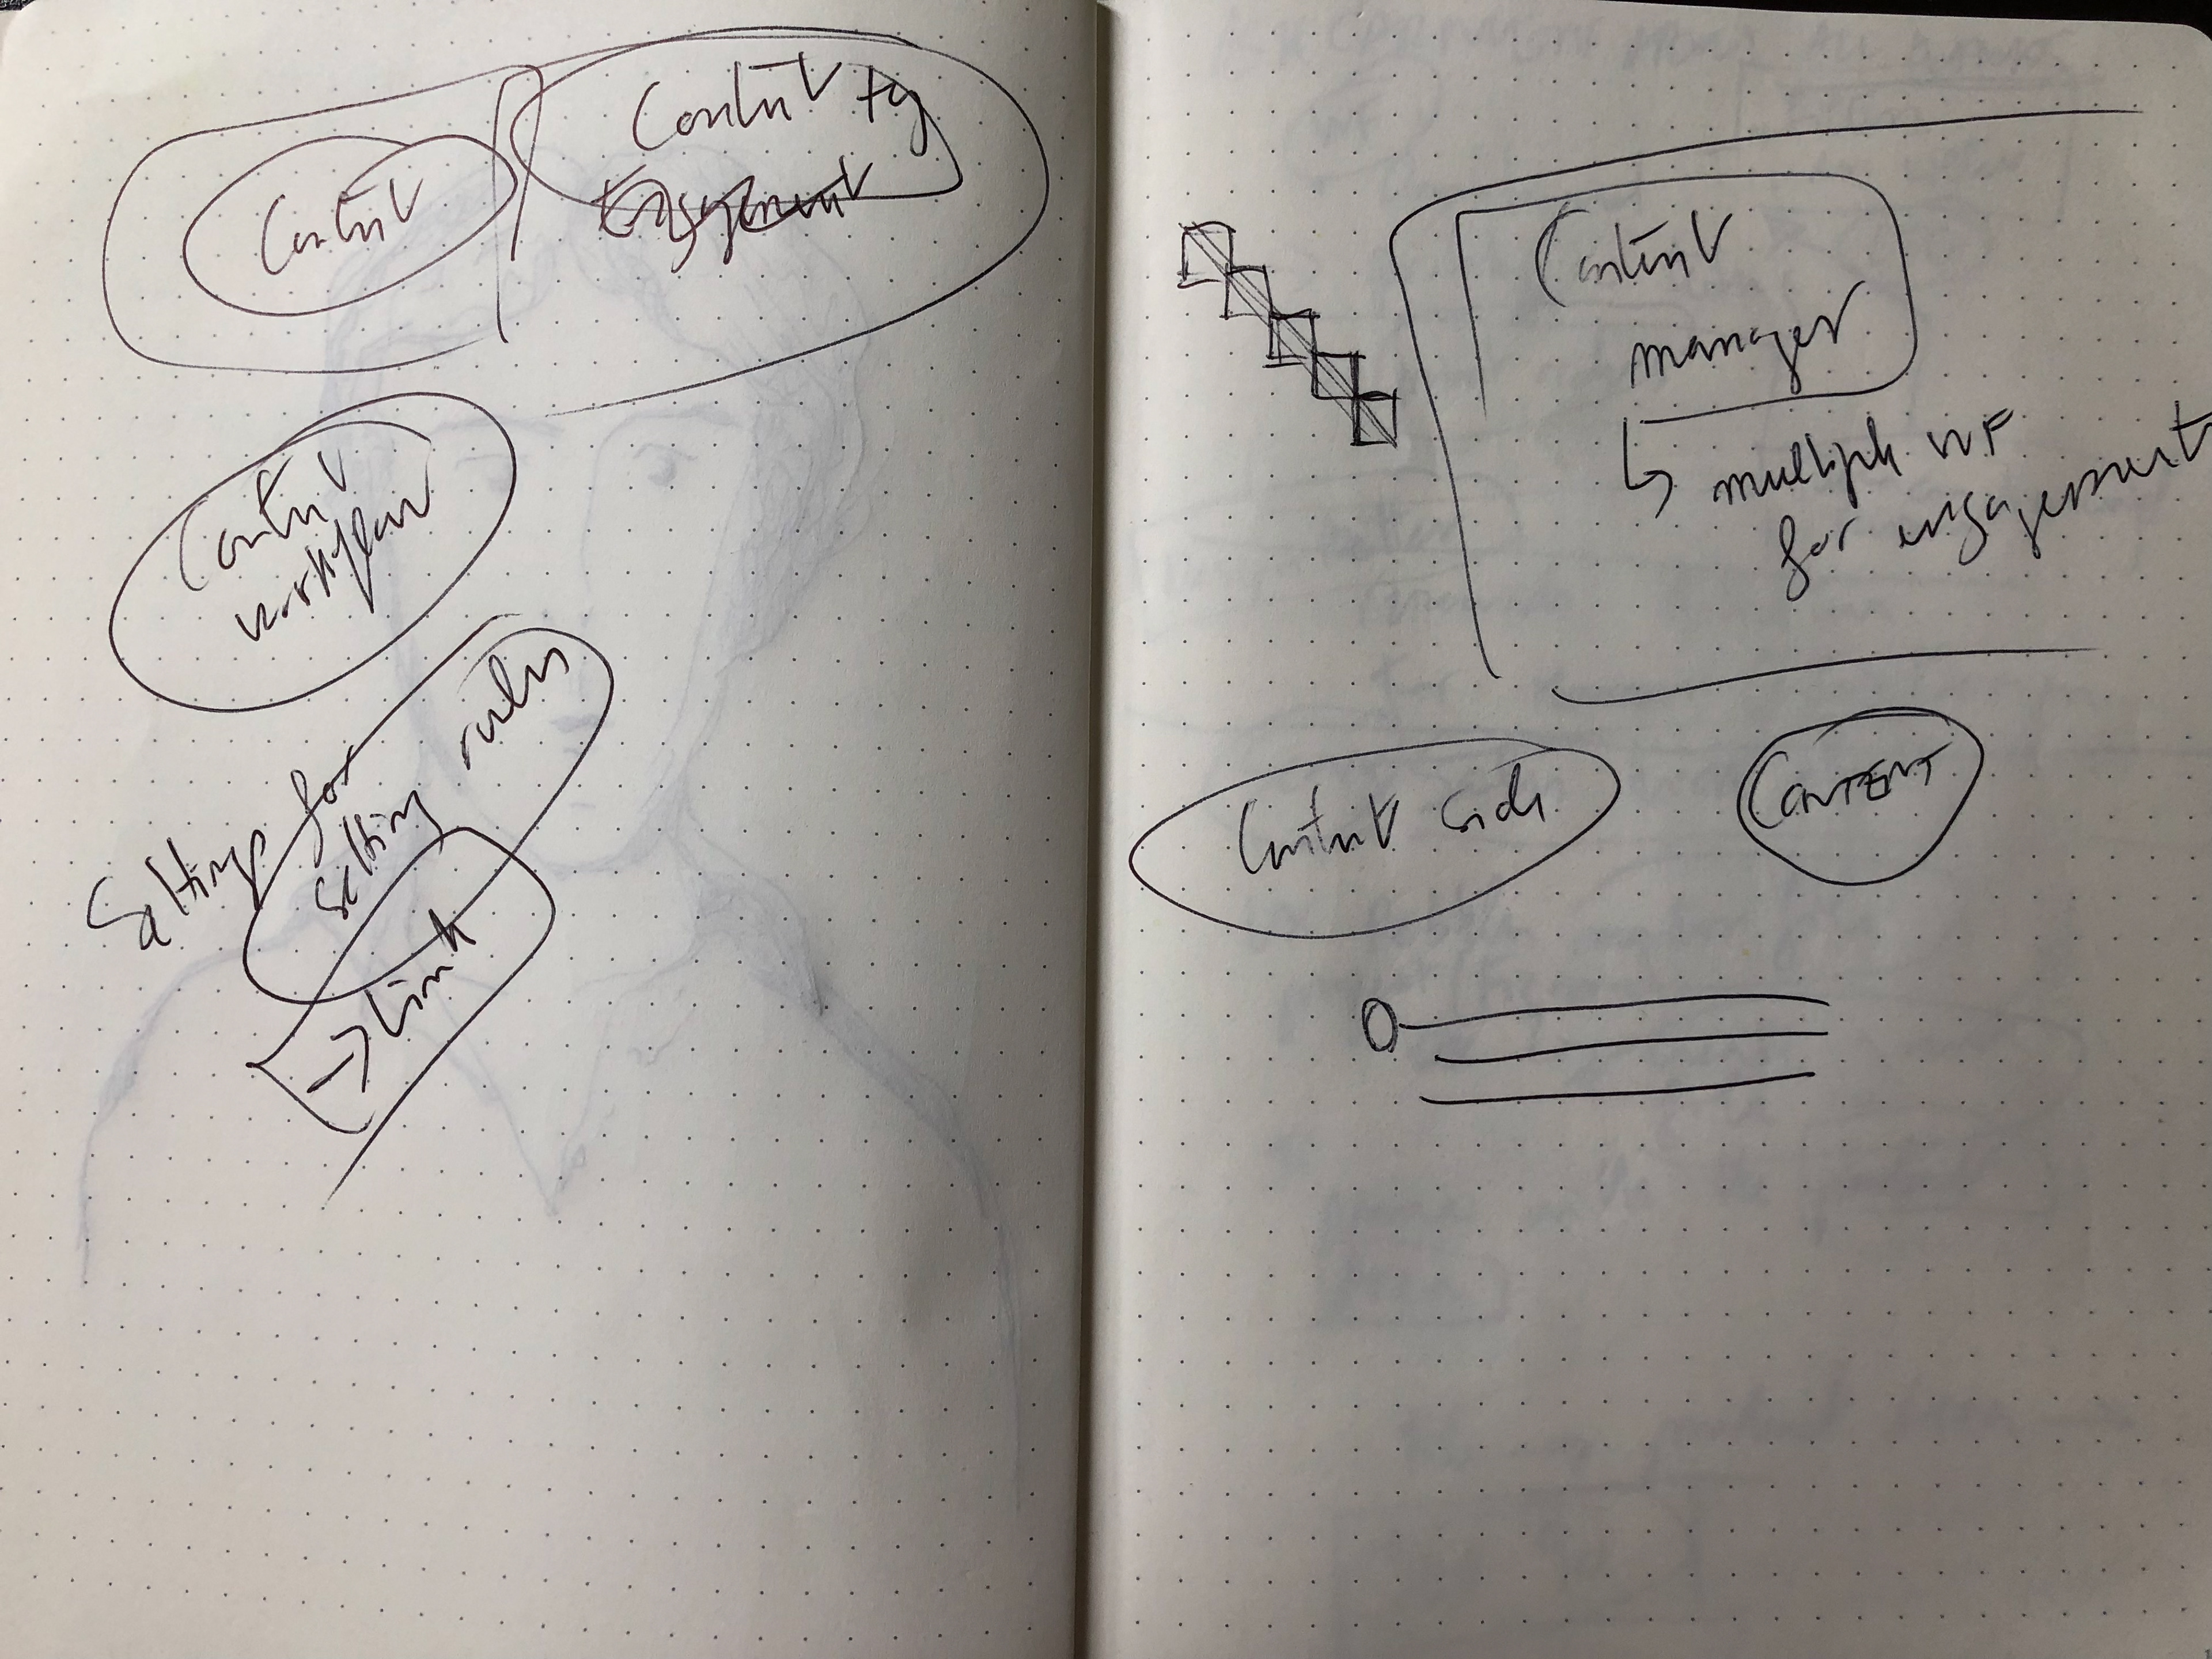 Content
Content tg
Engagement
Content
workflow
Settings for
setting rules
→ Link
Content
manager
↳ multiple WF
for engagement
Content side
CONTENT